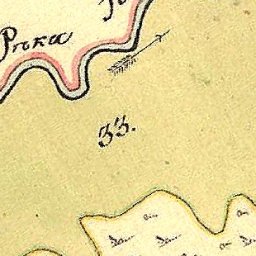 Рѣка
33.